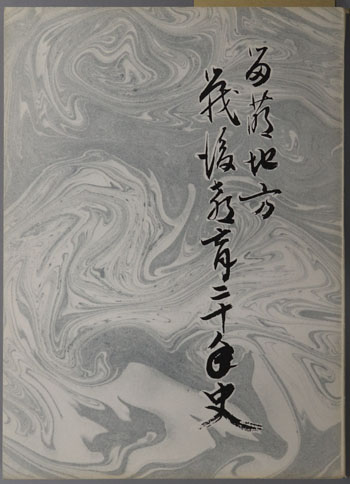 留萌地方
戦後教育二十年史